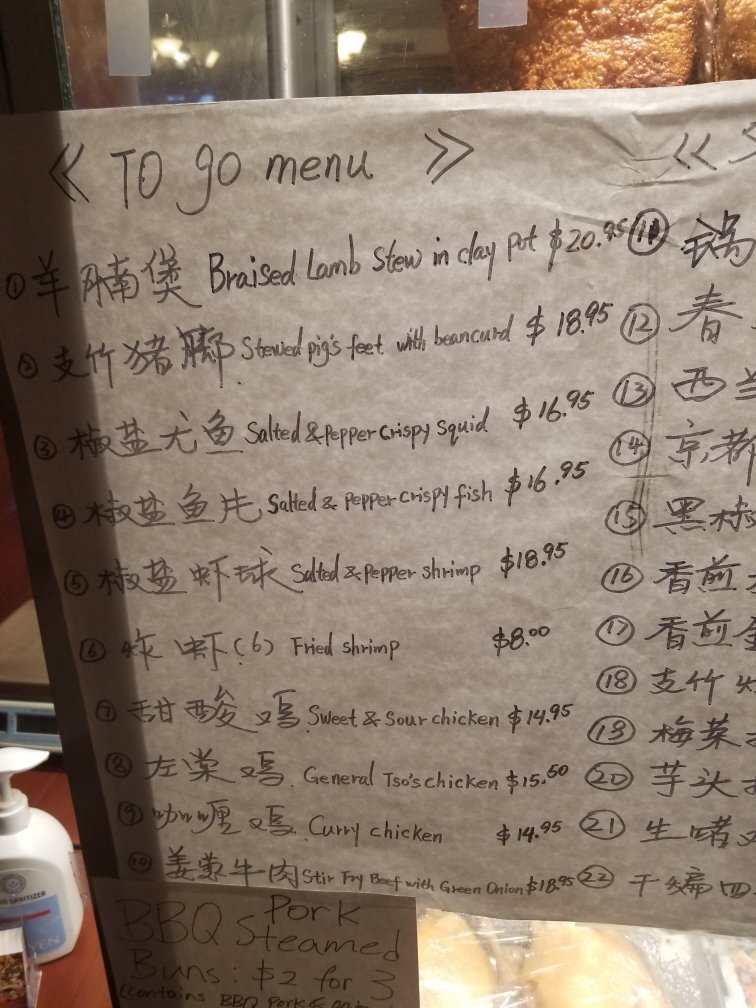 << TO go menu >>
① 羊腩煲 Braised Lamb Stew in clay pot $20.95
② 支竹猪脚 Stewed pig's feet with beancurd $18.95
③ 椒盐尤鱼 Salted & Pepper Crispy Squid $16.95
④ 椒盐鱼片 Salted & pepper crispy fish $16.95
⑤ 椒盐虾球 Salted & Pepper shrimp $18.95
⑥ 炸虾(6) Fried shrimp $8.00
⑦ 甜酸鸡 Sweet & Sour chicken $14.95
⑧ 左棠鸡 General Tso's chicken $15.50
⑨ 咖喱鸡 Curry chicken $14.95
⑩ 姜蒙牛肉 Stir Fry Beef with Green Onion $18.95
<<
⑪ 锅
⑫ 春
⑬ 西兰
⑭ 京都
⑮ 黑椒
⑯ 香煎
⑰ 香煎
⑱ 支竹
⑲ 梅菜
⑳ 芋头
㉑ 生啫
㉒ 干煸四
BBQ Pork
Steamed
Buns: $2 for 3
(contains BBQ Pork &